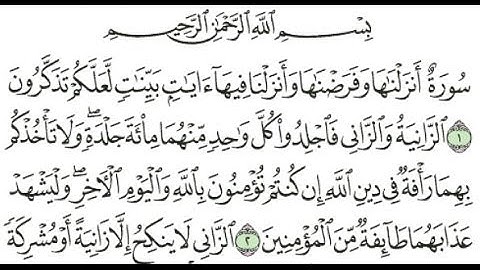 بِسْمِ ٱللَّهِ ٱلرَّحْمَٰنِ ٱلرَّحِيمِ
سُورَةٌ أَنزَلْنَٰهَا وَفَرَضْنَٰهَا وَأَنزَلْنَا فِيهَآ ءَايَٰتٍۭ بَيِّنَٰتٍ لَّعَلَّكُمْ تَذَكَّرُونَ
١ ٱلزَّانِيَةُ وَٱلزَّانِى فَٱجْلِدُوا۟ كُلَّ وَٰحِدٍ مِّنْهُمَا مِا۟ئَةَ جَلْدَةٍ ۖ وَلَا تَأْخُذْكُم
بِهِمَا رَأْفَةٌ فِى دِينِ ٱللَّهِ إِن كُنتُمْ تُؤْمِنُونَ بِٱللَّهِ وَٱلْيَوْمِ ٱلْءَاخِرِ ۖ وَلْيَشْهَدْ
عَذَابَهُمَا طَآئِفَةٌ مِّنَ ٱلْمُؤْمِنِينَ ٢ ٱلزَّانِى لَا يَنكِحُ إِلَّا زَانِيَةً أَوْ مُشْرِكَةً